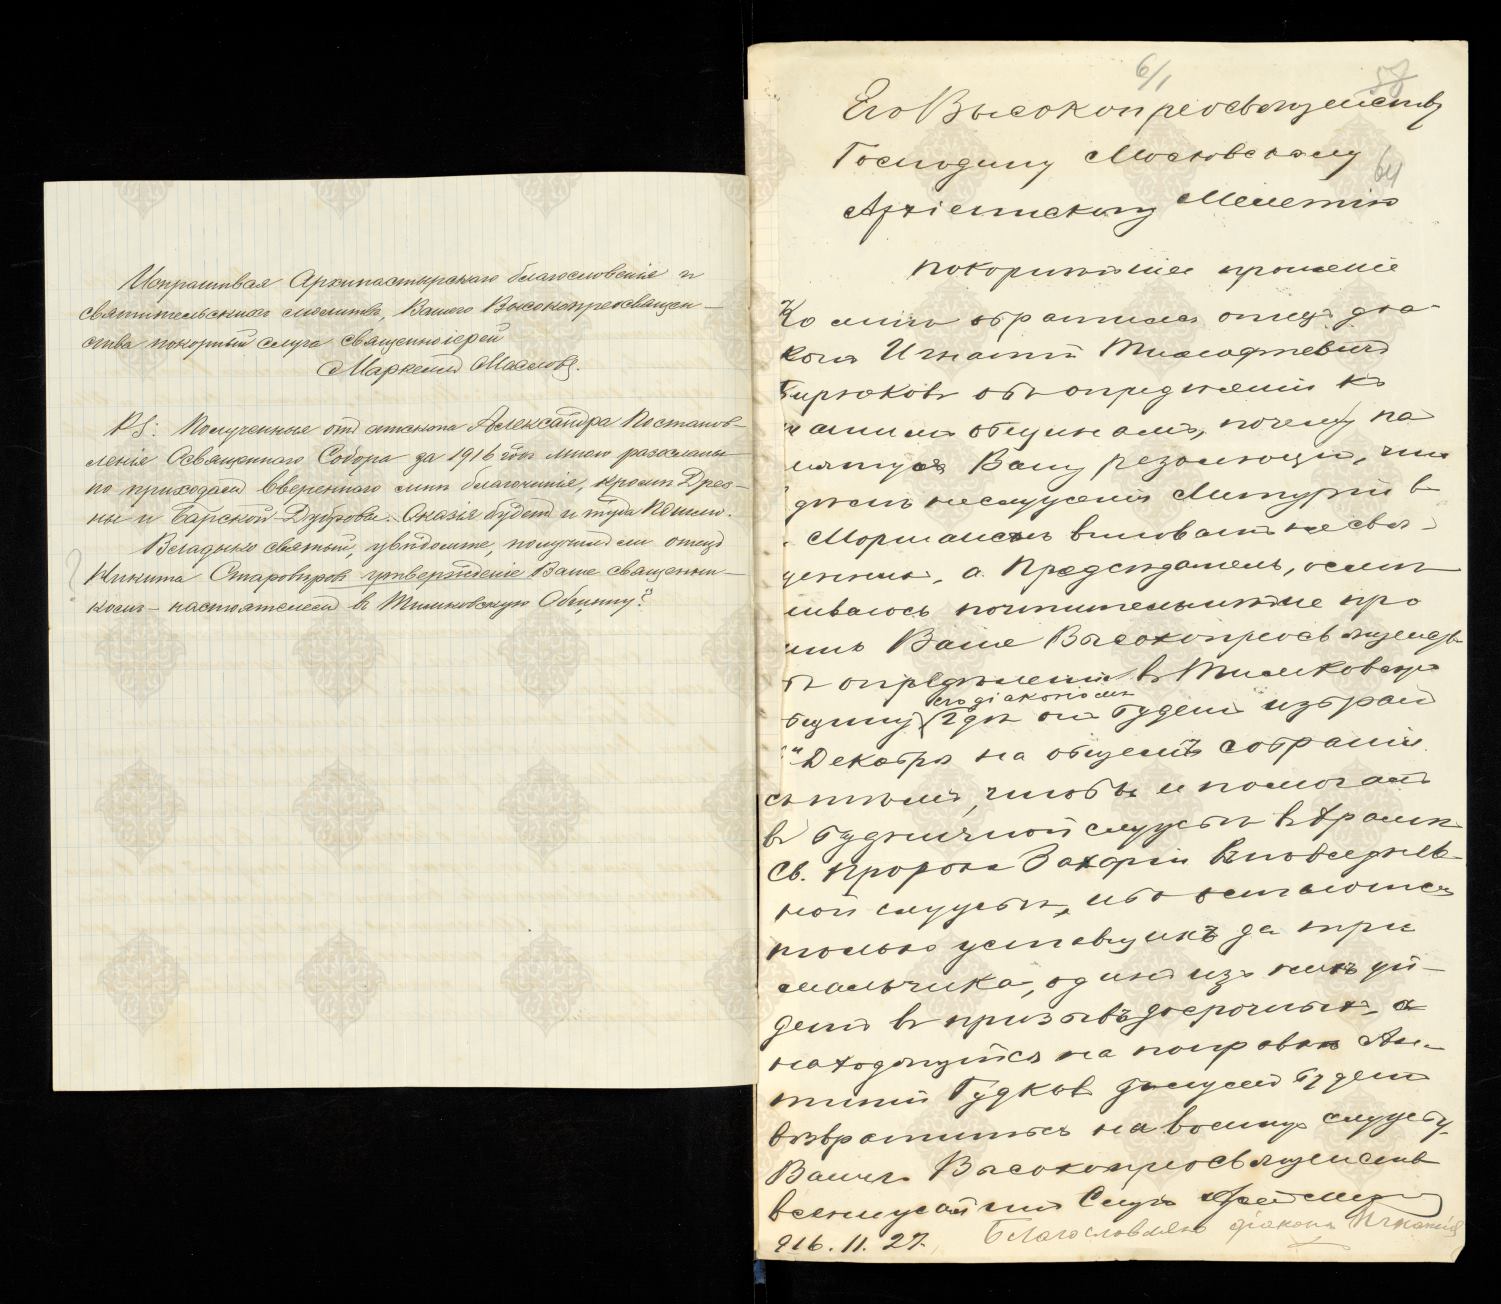 Испрашивая Архипастырскаго благословенiе и
святительских молитв, Вашего Высокопреосвящен-
ства покорный слуга священноiерей
Маркелл Маслов.
PS: Полученные отъ епископа Александра Постанов-
ленiе Освященнаго Собора за 1916 годъ мною разосланы
по приходам ввереннаго мнѣ благочинiе, кромѣ Дрез-
ны и Барской-Дубровы. Оказiя будетъ и туда пошлю.
Владыко святый, увѣдомите, получилъ ли отецъ
Никита Старовѣровъ утвержденiе Ваше священни-
комъ-настоятелем в Тимковскую Общину?
6/1
58
Его Высокопреосвященству
Господину Московскому
64
Архiепископу Мелетiю
покорнѣйшее прошенiе
Ко мнѣ обратился отец дiа-
кон Игнатiй Тимофѣевич
Бирюков об опредѣленiи к
нашим общинам, почему на
Вашу резолюцiю, что
неслуженiя Литургiи в
Моршанскѣ виноват не свя-
щенник, а Предсѣдатель, осмѣ
ливаюсь почтительнѣйше про
сить Ваше Высокопреосвященств
о опредѣленiи в Тимковскую
его дiаконом
общину, гдѣ он будет избран
Декабря на общем собранiи
с тѣм, чтобы и помогат
в будничной службѣ в Храмѣ
Св. Пророка Захарiи в повседнев-
ной службѣ, ибо остаются
только уставщикъ да три
мальчика, один из них уй-
дет в призыв досрочных, а
находящiйся на поправкѣ Ан-
типiй Гудков должен будет
возвратиться на военную службу.
Вашего Высокопреосвященства
всенижайшiй Слуга
916. 11. 27.
Благословляю дiакона Игнатiя